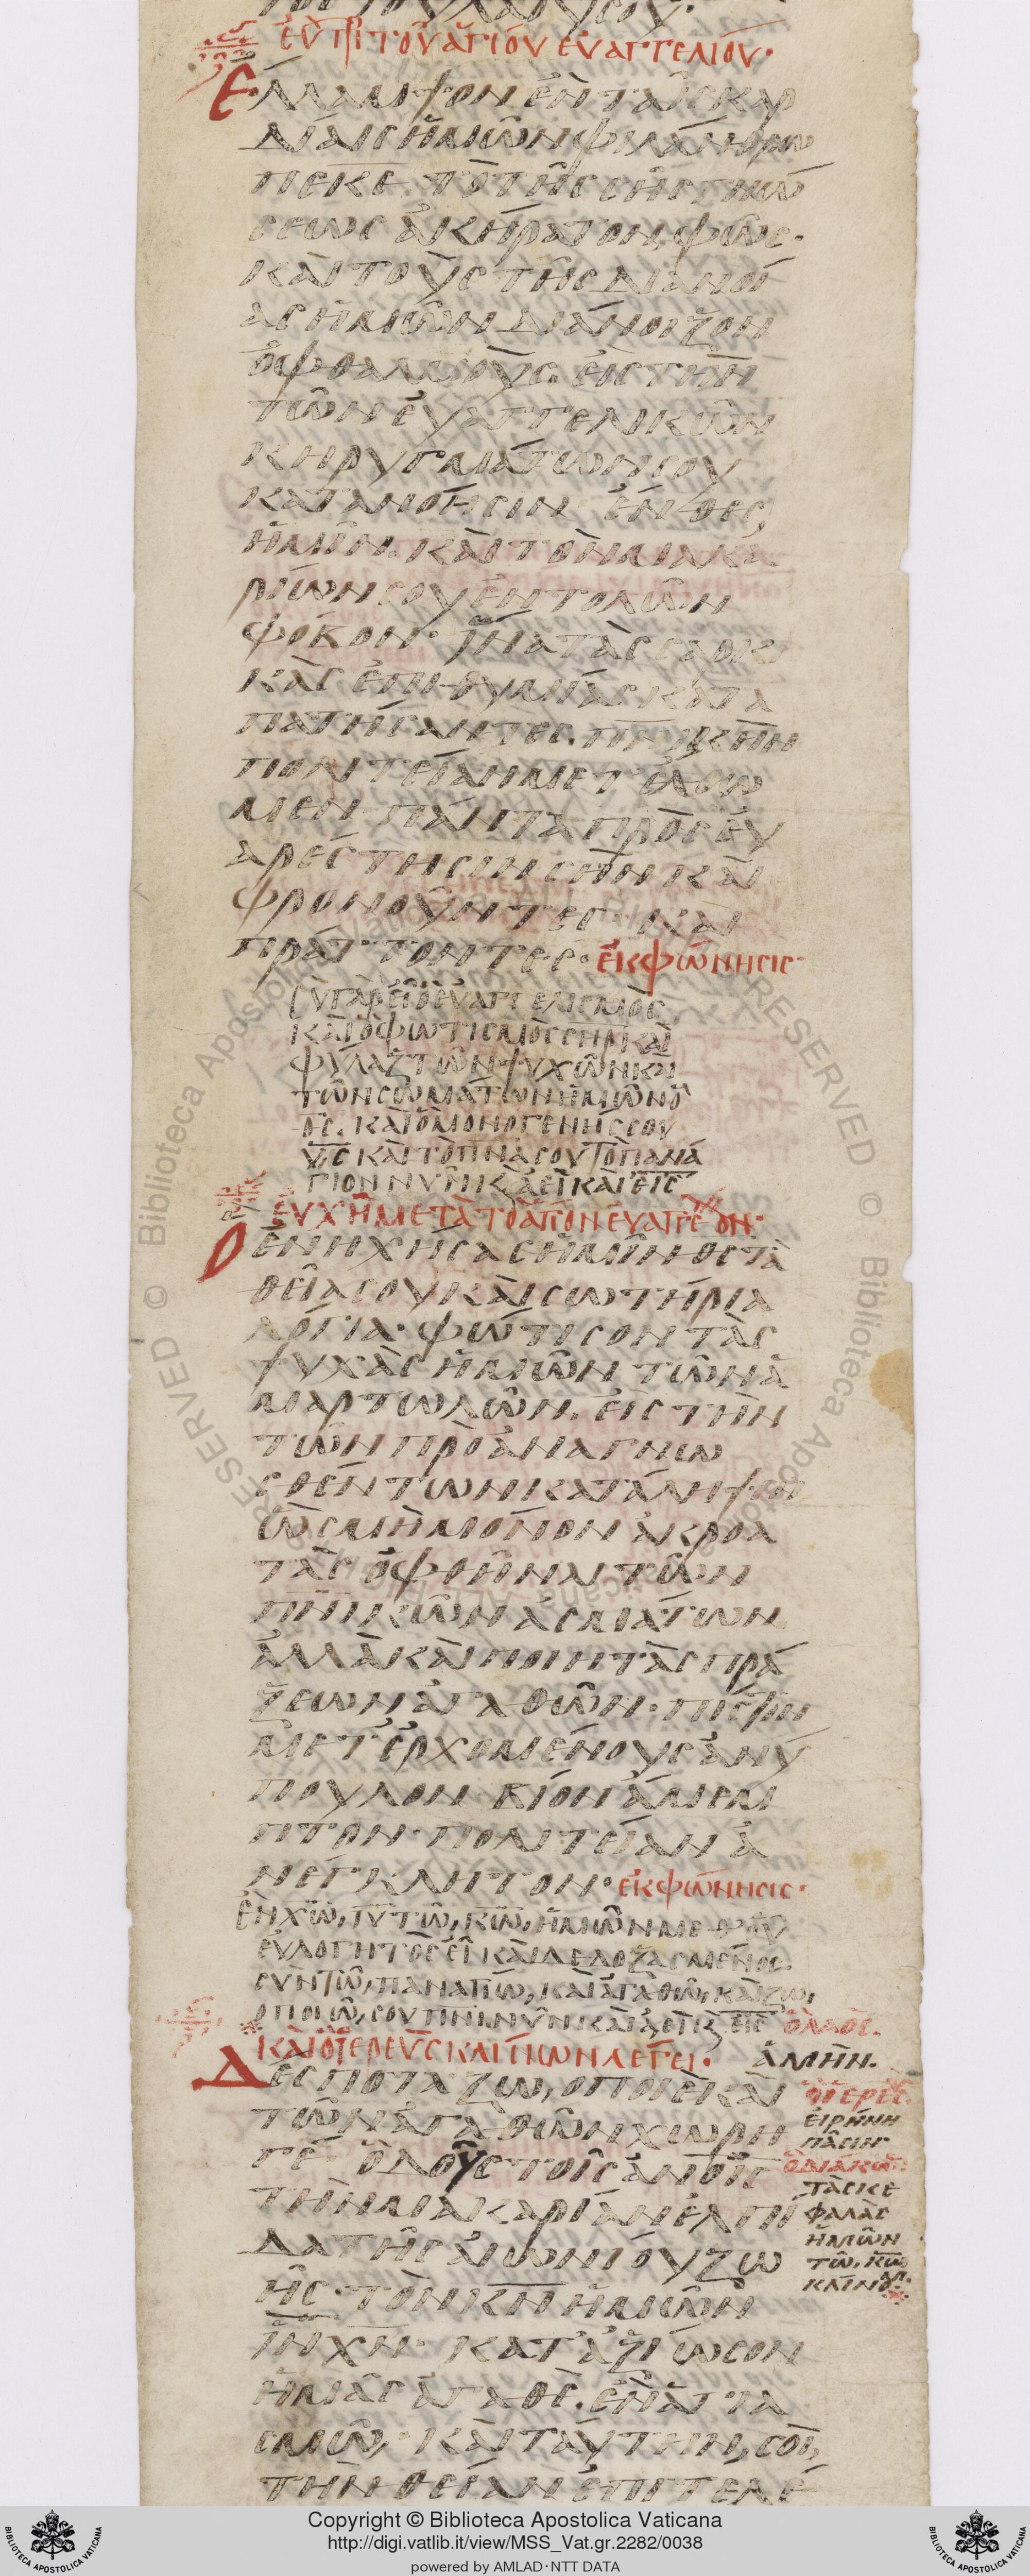 εὐχὴ τοῦ ἁγίου εὐαγγελίου·
Ἔλλαμψον ἐν ταῖς καρ
δίαις ἡμῶν φιλάνθρω
πε κε τὸ τῆς σῆς γνώ
σεως ἀκήρατον φῶς·
καὶ τοὺς τῆς διανοί
ας ἡμῶν διάνοιξον
ὀφθαλμοὺς. εἰς τὴν
τῶν εὐαγγελικῶν
κηρυγμάτων σου
κατανόησιν ἔνθες
ἡμῖν. καὶ τὸν μακα
ρίων σου ἐντολῶν
φόβον· ἵνα τὰς σαρκι
κὰς ἐπιθυμίας κατα
πατήσαντες. πνικὴν
πολιτείαν μετέλθω
μεν πάντα πρὸς εὐ
αρέστησιν σὴν καὶ
φρονοῦντες καὶ
πράττοντες· ἐκφώνησις
Σὺ γὰρ εἶ ὁ εὐαγγελισμὸς
καὶ ὁ φωτισμὸς σηρ καὶ
φύλαξ τῶν ψυχῶν καὶ
τῶν σωμάτων ἡμῶν ὁ
θς. καὶ ὁ μονογενής σου
υς καὶ τὸ πνα σου τὸ πανά
γιον νῦν κ ἀεὶ καὶ εἰς
εὐχὴ μετὰ τὸ ἅγιον εὐαγγέον·
Ὁ ἐνηχήσας ἡμῖν θς τὰ
θεῖά σου καὶ σωτήρια
λόγια· φώτισον τὰς
ψυχὰς ἡμῶν τῶν ἁ
μαρτωλῶν. εἰς τὴν
τῶν προαναγνω
σθέντων κατάληψιν
ὡς μὴ μόνον ἀκροα
τὰς ὀφθῆναι τῶν
πνικῶν ἀσμάτων
ἀλλὰ καὶ ποιητὰς πρά
ξεων ἀγαθῶν· πίστιν
μετερχομένους ἀνύ
πουλον βίον ἄμεμ
πτον· πολιτείαν ἀ
νέγκλητον· ἐκφώνησις·
ἐν χω, ιυ τῷ, κω, ἡμῶν μεθ οὗ
εὐλογητὸς εἶ καὶ δεδοξασμένος.
σὺν τῷ, παναγίω, καὶ ἀγαθῶ, καὶ ζω,
οποιῶ, σου πνι νῦν καὶ ἀεὶ κ εἰς ὁ λαὸς.
καὶ ὁ ἱερεὺς κλίνων λέγει. ἀμὴν.
Δέσποτα ζω,οποιὲ καὶ
τῶν ἀγαθῶν χωρη
γέ ὁ δοὺς τοῖς ἀνοῖς
τὴν μακαρίαν ἐλπί
δα τῆς αἰωνίου ζω
ῆς· τὸν κν ἡμῶν
ιν χν· καταξίωσον
ἡμᾶς ἀγαθέ. ἐν ἁγια
σμῶ, καὶ ταύτην, σοι,
τὴν θείαν ἐπιτελέ
ὁ ἱερεύς.
εἰρήνη
πᾶσιν
ὁ διάκων
τὰς κε
φαλὰς
ἡμῶν
τῶ, κω
κλίνο